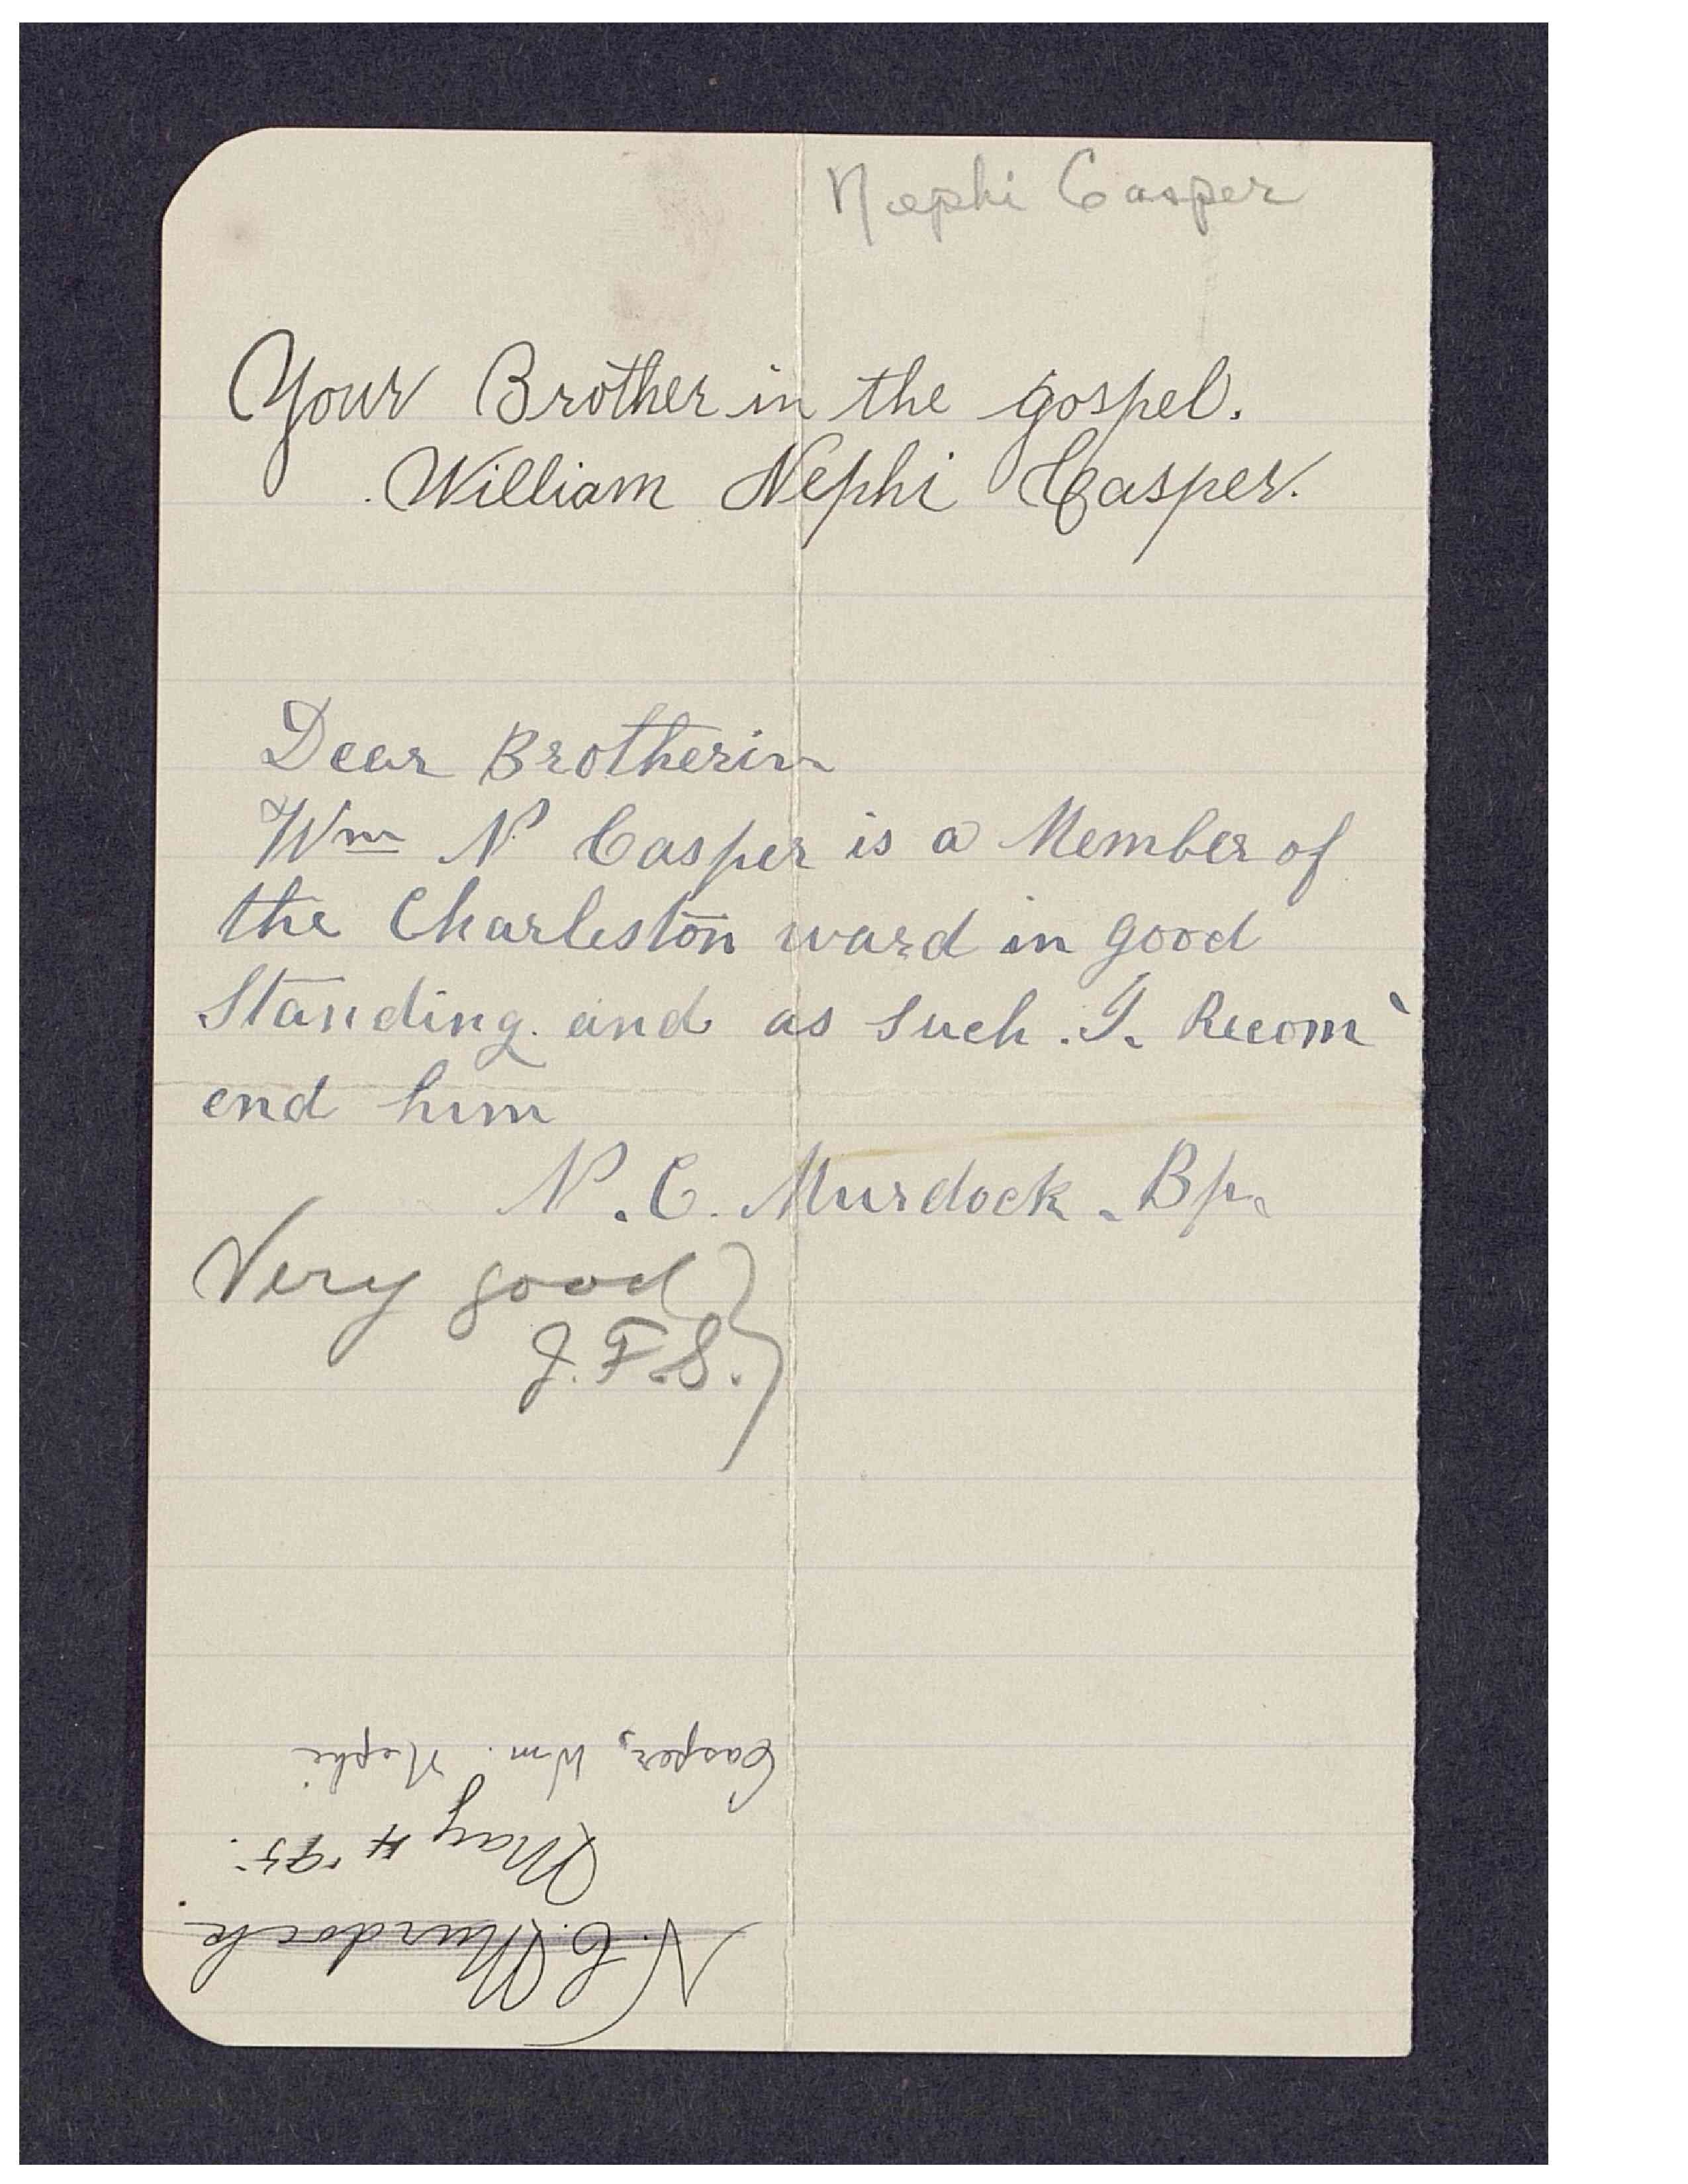 Nephi Casper
Your Brother in the gospel.
William Nephi Casper.
Dear Brotherin
Wm N Casper is a Member of
the Charleston ward in good
Standing. and as Such. I. Recom
end him
N. C. Murdock. Bp.
Very good
J. F. S.
Casper, Wm. Nephi
May 4 '95.
N. C. Murdock